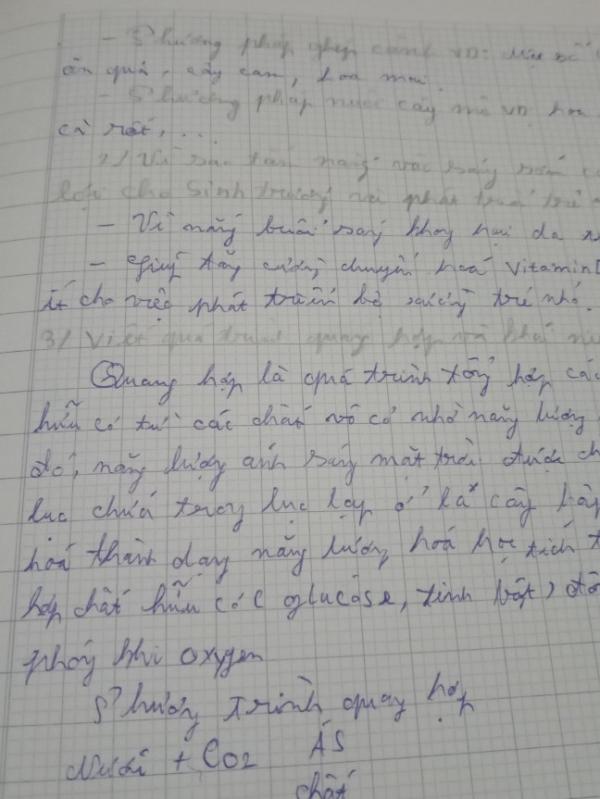 - Phương pháp ghép cành VD: Một số
ăn quả, cây cam, hoa mai.
- Phương pháp nuôi cấy mô VD hoa
cà rốt, ...
2/ Vì sao tắm nắng vào sáng sớm có
lợi cho sinh trưởng và phát triển trẻ
- Vì nắng buổi sáng không hại da
- Giúp tăng cường chuyển hoá vitamin D
ít cho việc phát triển hệ xương trẻ nhỏ.
3/ Viết quá trình quang hợp và khái
Quang hợp là quá trình tổng hợp các
hữu cơ từ các chất vô cơ nhờ năng lượng
đó, năng lượng ánh sáng mặt trời được
lục chứa trong lục lạp ở lá cây
hoá thành dạng năng lượng hoá học tích
hợp chất hữu cơ ( glucose, tinh bột )
phóng khí oxygen
Phương trình quang hợp
Nước + CO2 ÁS
chất